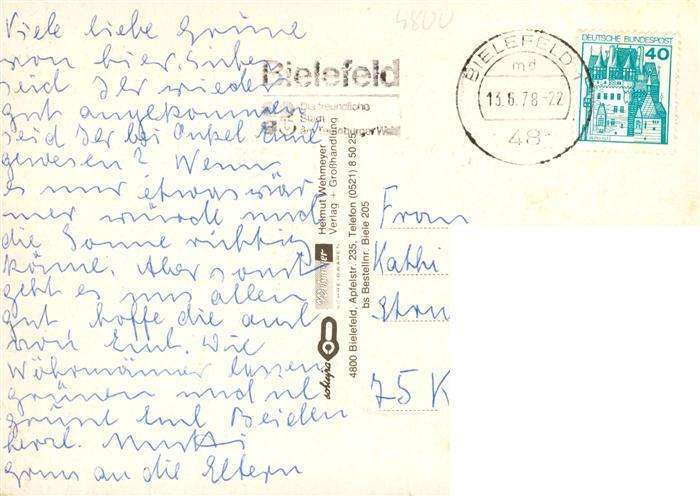 Viele liebe Grüne
von hier. Sicher
seid Ihr wieder
gut angekommen
seid Ihr bei Onkel
gewesen? Wenn
es nur etwas wär
mer würde und
die Sonne richtig
käme. Aber sonst
geht es uns allen
gut hoffe die auch
von Euch. Die
lassen
grünen und ich
grüne Euch Beiden
herzl. Mutti
Gruss an die Eltern
4800
Bielefeld
Die freundliche
Stadt
am Teutoburger Wald
BIELEFELD 1
md
13.6.78-22
48
DEUTSCHE BUNDESPOST
40
Helmut Wehmeyer
Verlag + Großhandlung
4800 Bielefeld, Apfelstr. 235, Telefon (0521) 8 50 25
bs Bestellnr. Biele 205
Frau
Kathi
75 K